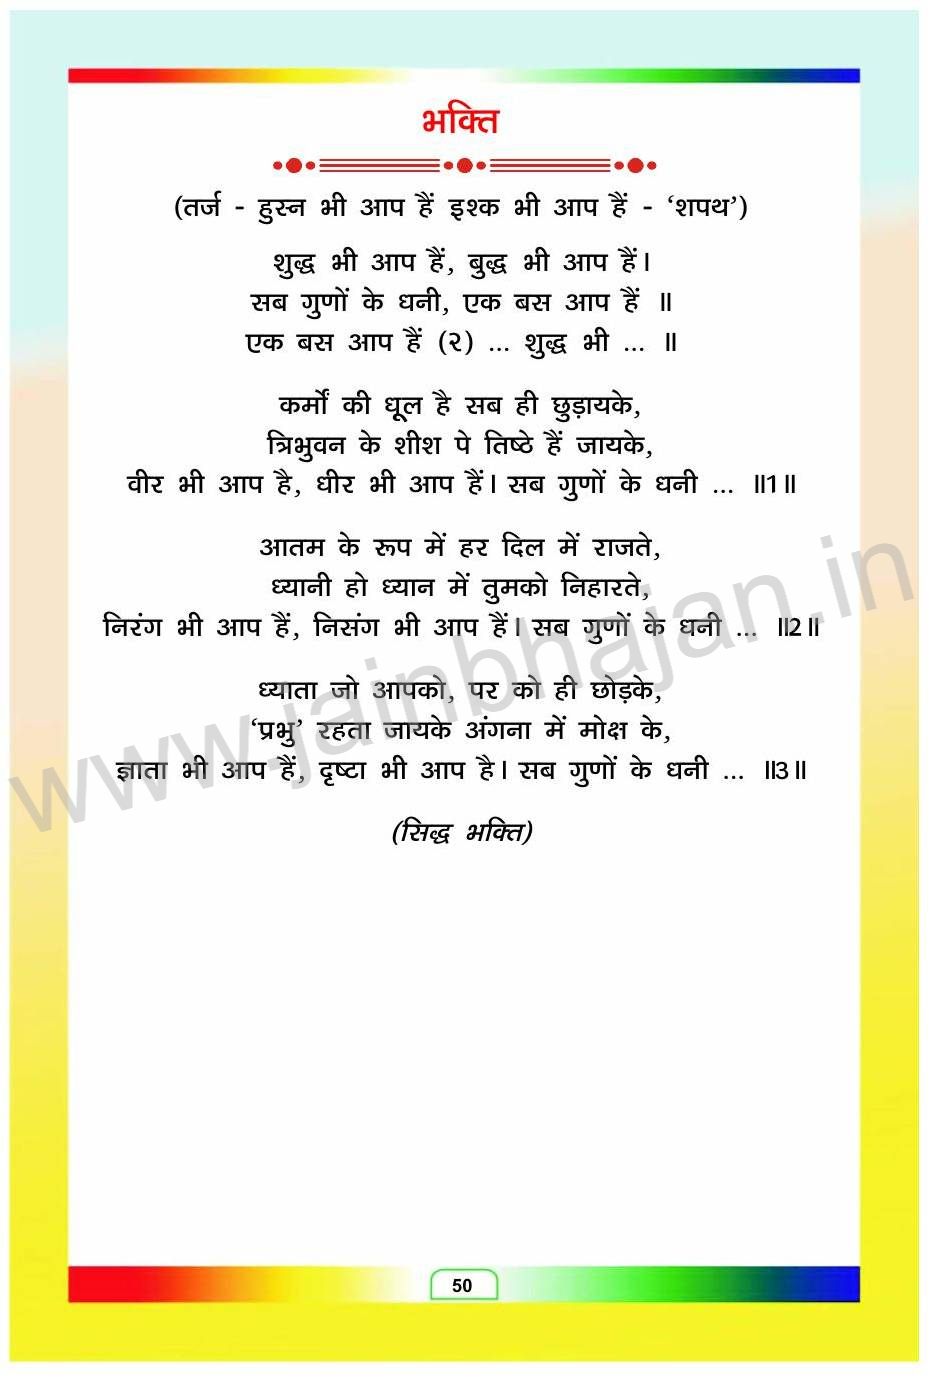 भक्ति
(तर्ज - हुस्न भी आप हैं इश्क भी आप हैं - ‘शपथ’)
शुद्ध भी आप हैं, बुद्ध भी आप हैं।
सब गुणों के धनी, एक बस आप हैं ॥
एक बस आप हैं (२) ... शुद्ध भी ... ॥
कर्मों की धूल है सब ही छुड़ायके,
त्रिभुवन के शीश पे तिष्ठे हैं जायके,
वीर भी आप है, धीर भी आप हैं। सब गुणों के धनी ... ॥1॥
आतम के रूप में हर दिल में राजते,
ध्यानी हो ध्यान में तुमको निहारते,
निरंग भी आप हैं, निसंग भी आप हैं। सब गुणों के धनी ... ॥2॥
ध्याता जो आपको, पर को ही छोड़के,
‘प्रभु’ रहता जायके अंगना में मोक्ष के,
ज्ञाता भी आप हैं, दृष्टा भी आप है। सब गुणों के धनी ... ॥3॥
(सिद्ध भक्ति)
www.jainbhajan.in
50